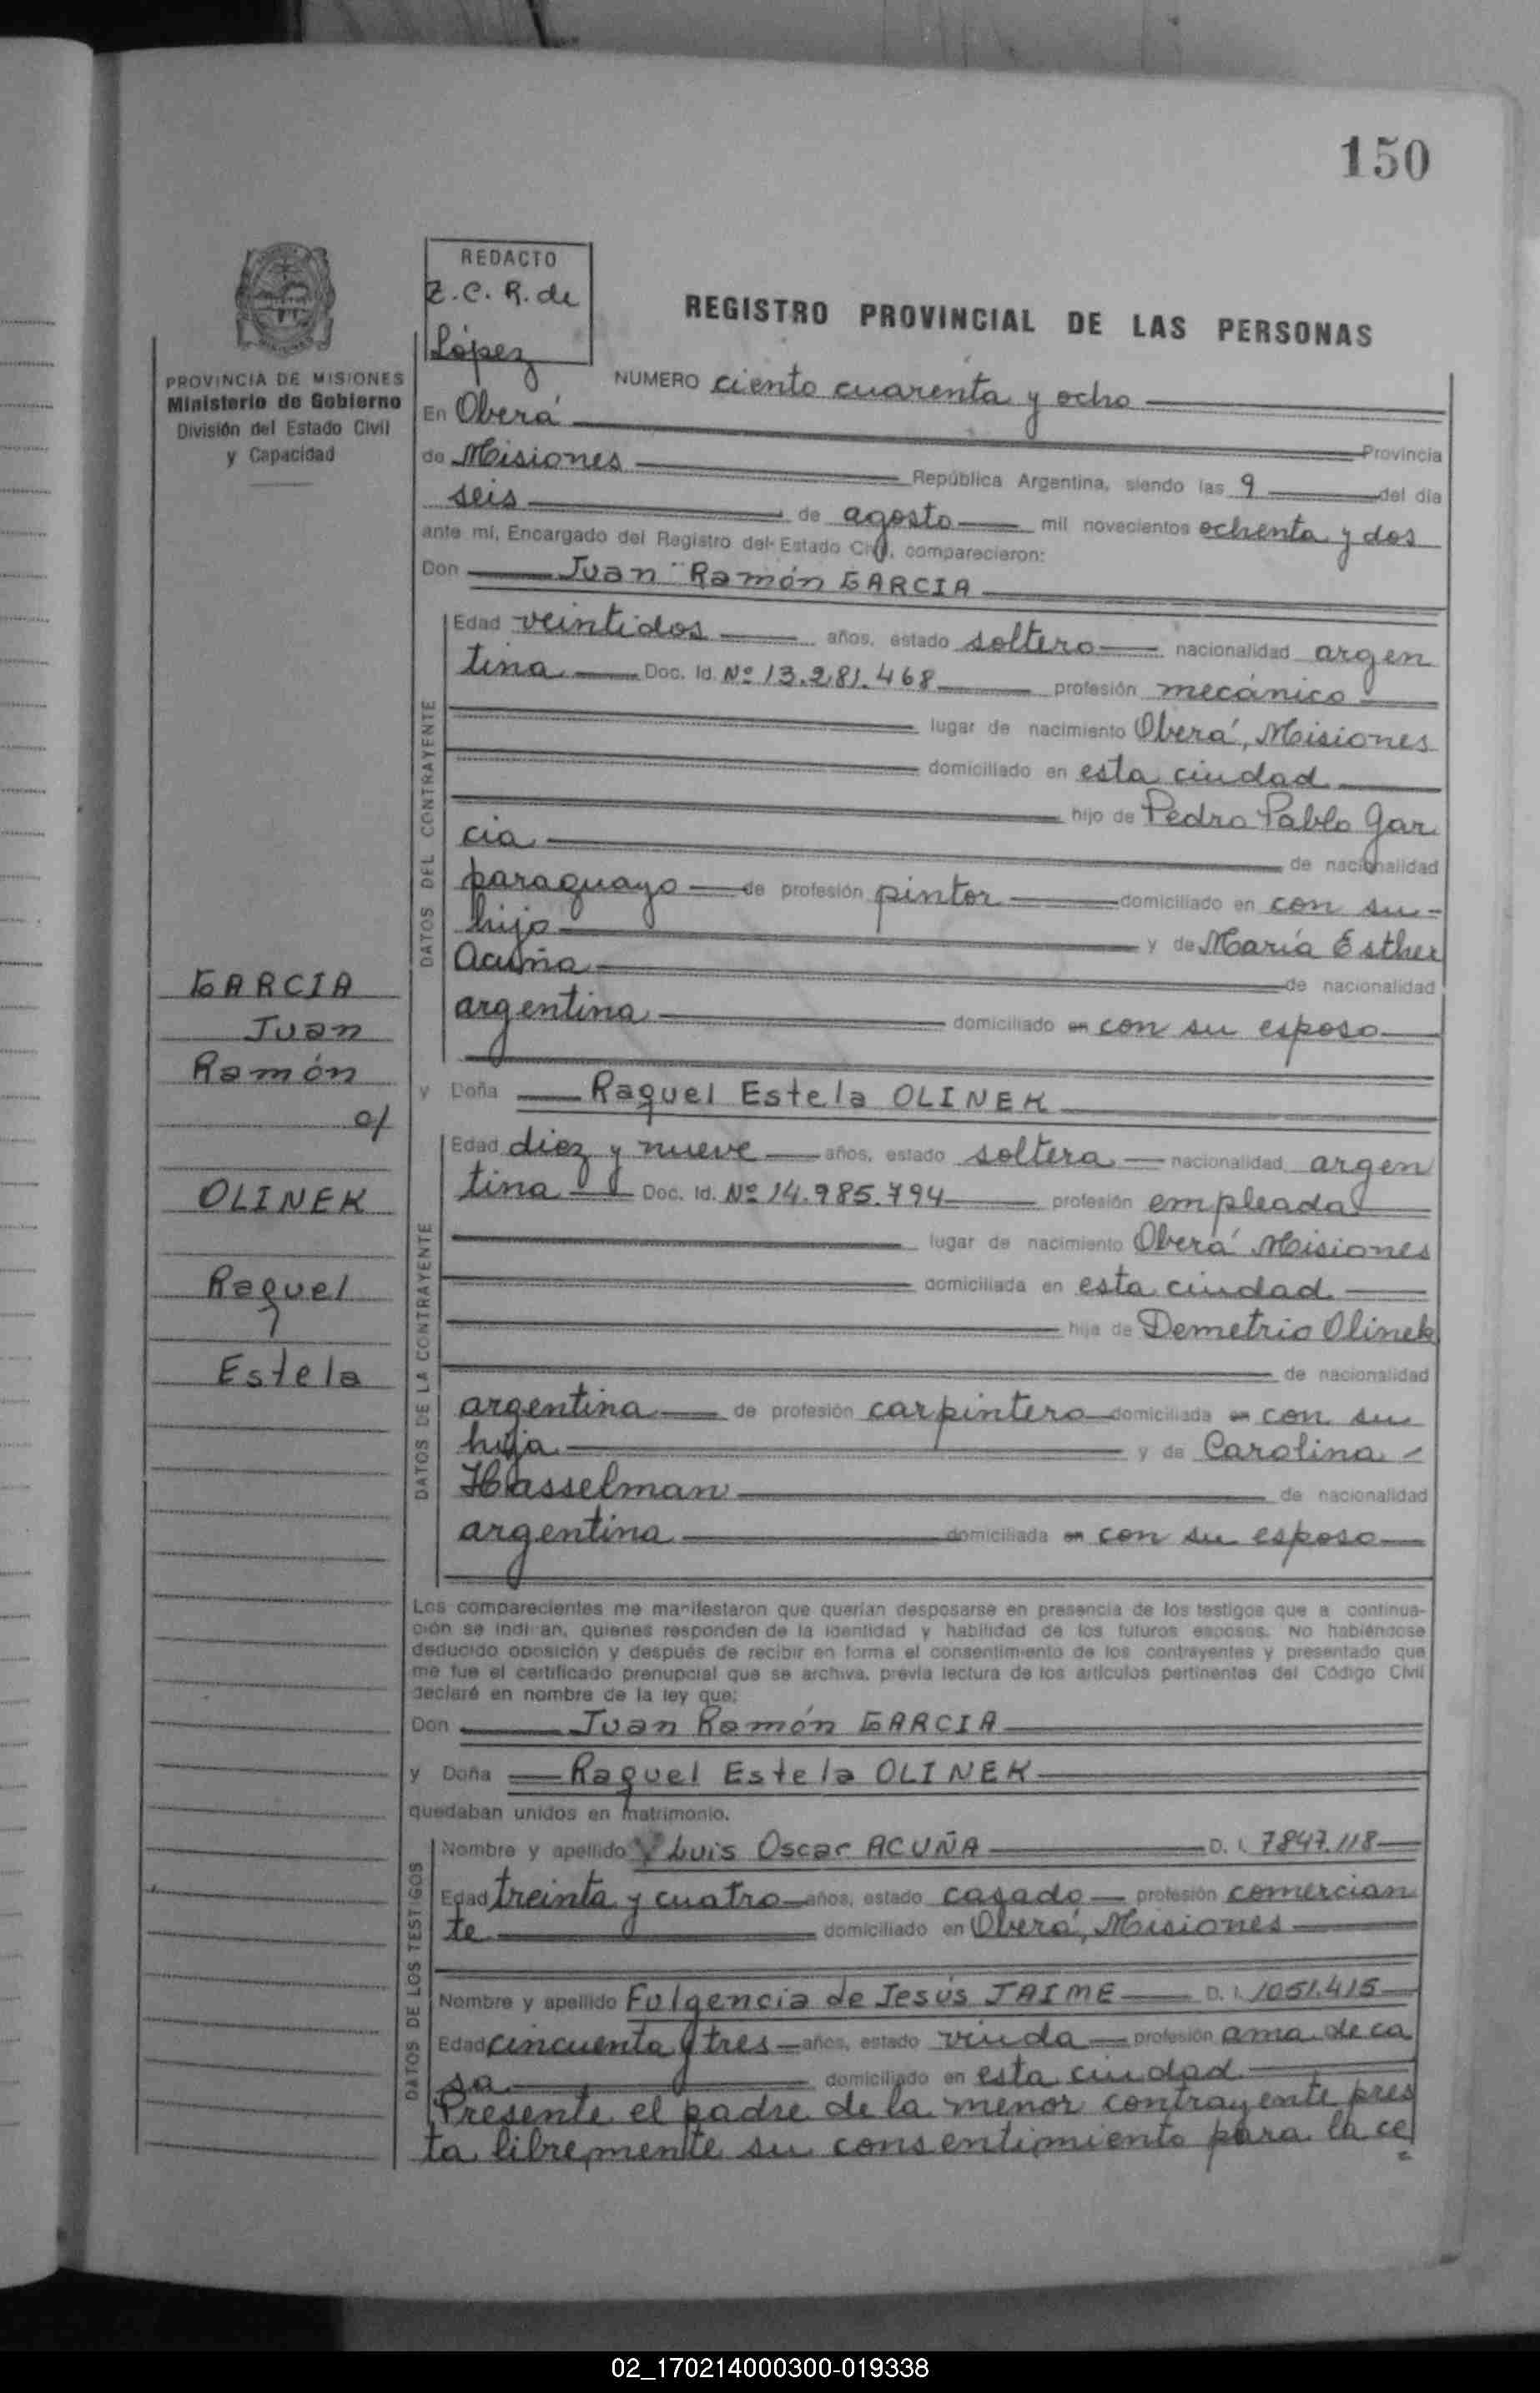 150
REDACTO
Z.C.R. de
López
REGISTRO PROVINCIAL DE LAS PERSONAS
PROVINCIA DE MISIONES
Ministerio de Gobierno
División del Estado Civil
y Capacidad
NUMERO ciento cuarenta y ocho
En Oberá Provincia
de Misiones República Argentina, siendo las 9 del día
seis de agosto mil novecientos ochenta y dos
ante mí, Encargado del Registro del Estado Civil, comparecieron:
Don Juan Ramón GARCIA
DATOS DEL CONTRAYENTE
Edad veintidos años, estado soltero nacionalidad argen
tina Doc. Id. Nº 13.281.468 profesión mecánico
lugar de nacimiento Oberá, Misiones
domiciliado en esta ciudad
hijo de Pedro Pablo Gar
cia de nacionalidad
paraguayo de profesión pintor domiciliado en con su
hijo y de María Esther
Acuña de nacionalidad
argentina domiciliado en con su esposo
GARCIA
Juan
Ramón
c/
OLINEK
Raquel
Estela
y Doña Raquel Estela OLINEK
DATOS DE LA CONTRAYENTE
Edad diez y nueve años, estado soltera nacionalidad argen
tina Doc. Id. Nº 14.985.794 profesión empleada
lugar de nacimiento Oberá Misiones
domiciliada en esta ciudad
hija de Demetrio Olinek
de nacionalidad
argentina de profesión carpintero domiciliada en con su
hija y de Carolina
Hasselman de nacionalidad
argentina domiciliada en con su esposo
Los comparecientes me manifestaron que querían desposarse en presencia de los testigos que a continua-
ción se indi an, quienes responden de la identidad y habilidad de los futuros esposos. No habiéndose
deducido oposición y después de recibir en forma el consentimiento de los contrayentes y presentado que
me fue el certificado prenupcial que se archiva, previa lectura de los artículos pertinentes del Código Civil
declaré en nombre de la ley que:
Don Juan Ramón GARCIA
y Doña Raquel Estela OLINEK
quedaban unidos en matrimonio.
DATOS DE LOS TESTIGOS
Nombre y apellido Luis Oscar ACUÑA D. I. 7847.118
Edad treinta y cuatro años, estado casado profesión comercian
te domiciliado en Oberá, Misiones
Nombre y apellido Fulgencia de Jesús JAIME D. I. 1051.415
Edad cincuenta y tres años, estado viuda profesión ama de ca
sa domiciliado en esta ciudad
Presente el padre de la menor contrayente pres
ta libremente su consentimiento para la ce
02_170214000300-019338